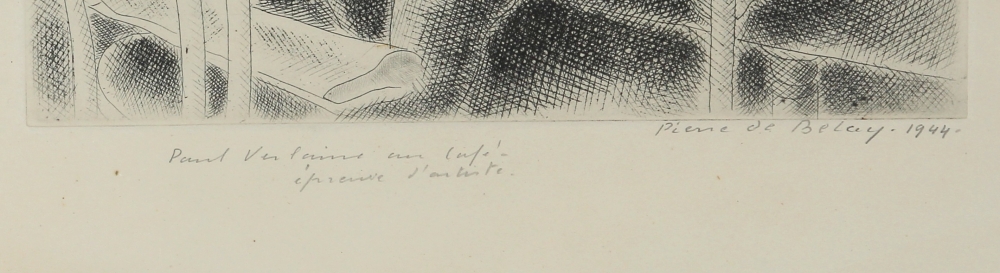 Pierre de Belay. 1944.
Paul Verlaine au Café.
épreuve d'artiste.